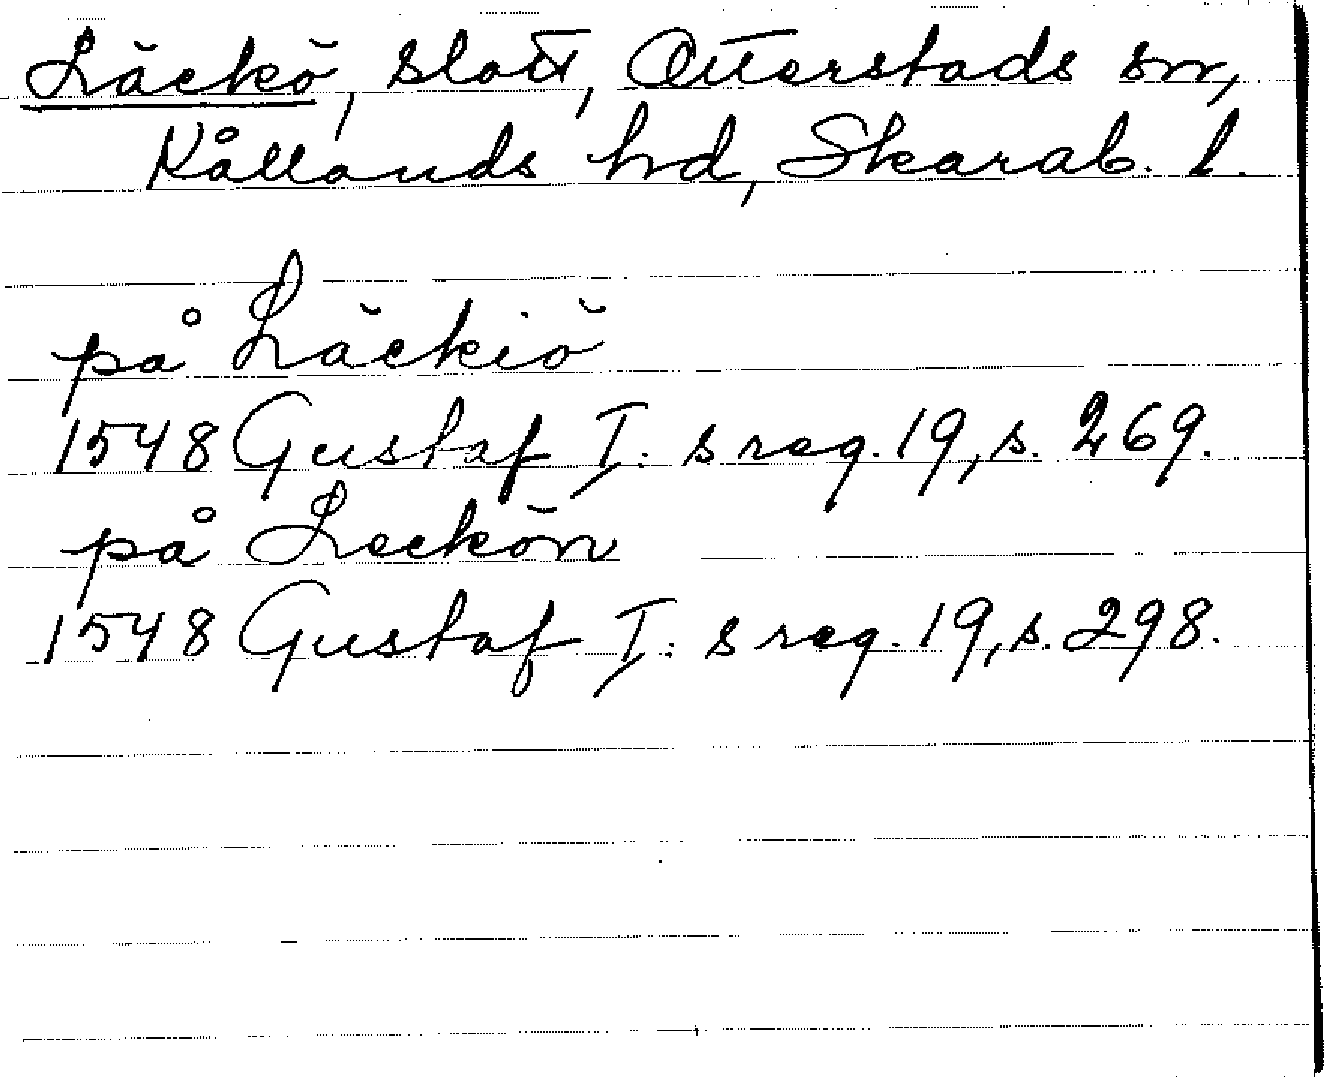 Läckö, slott, Otterstads sn,
Kållands hd, Skarab. l.
på Läckiö
1548 Gustaf I: s reg. 19, s. 269.
på Leckön
1548 Gustaf I: s reg. 19, s. 298.